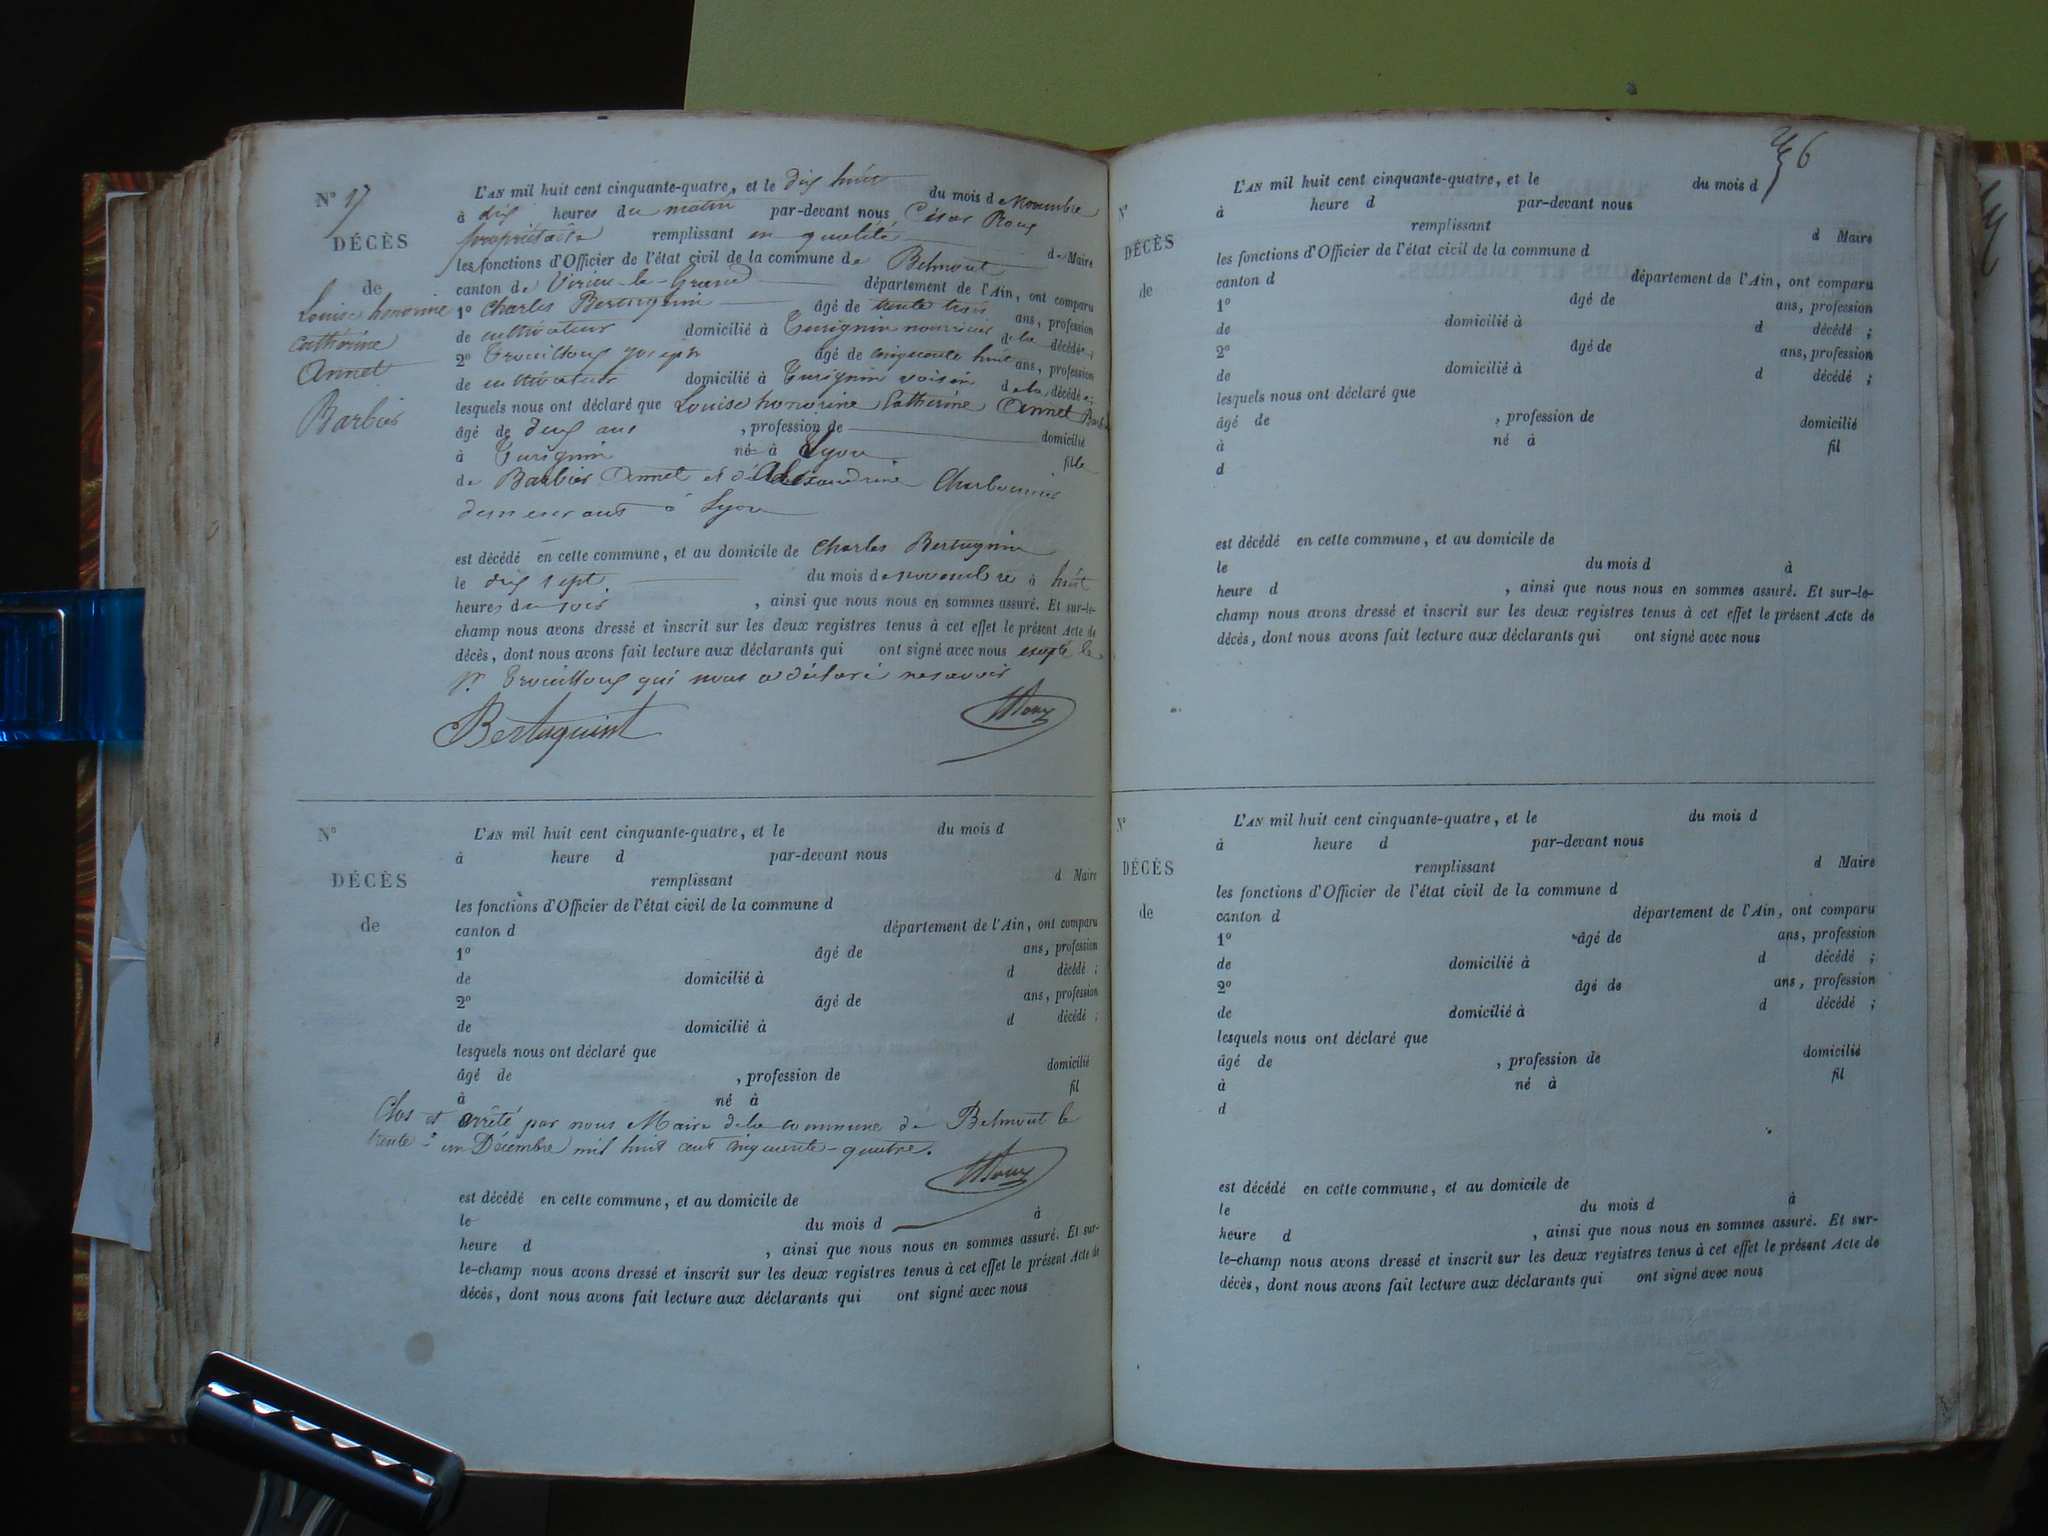 N° 17
DÉCÈS
de
Louise honorine
Catherine
Annet
Barbier
L'AN mil huit cent cinquante-quatre, et le dix huit du mois de Novembre
à dix heures du matin par-devant nous César Roux
propriétaire remplissant en qualité de Maire
les fonctions d'Officier de l'état civil de la commune de Belmont
canton de Virieu-le-Grand département de l'Ain, ont comparu
1° Charles Bertugnin âgé de trente trois ans, profession
de cultivateur domicilié à Turignin nourricier de la décédée;
2° Trouilloux joseph âgé de cinquante huit ans, profession
de cultivateur domicilié à Turignin voisin de la décédée;
lesquels nous ont déclaré que Louise honorine Catherine Annet Barbier
âgé de deux ans , profession de domicilié
à Turignin né à Lyon fille
de Barbier Annet et d'Alexandrine Charbonnier
demeurant à Lyon
est décédé en cette commune, et au domicile de Charles Bertugnin
le dix sept du mois de novembre à huit
heures du soir , ainsi que nous nous en sommes assuré. Et sur-le-
champ nous avons dressé et inscrit sur les deux registres tenus à cet effet le présent Acte de
décès, dont nous avons fait lecture aux déclarants qui ont signé avec nous excepté le
Sr Trouilloux qui nous a déclaré ne savoir
Bertuguint Roux
N°
DÉCÈS
de
L'AN mil huit cent cinquante-quatre, et le du mois d
à heure d par-devant nous
remplissant d Maire
les fonctions d'Officier de l'état civil de la commune d
canton d département de l'Ain, ont comparu
1° âgé de ans, profession
de domicilié à d décédé ;
2° âgé de ans, profession
de domicilié à d décédé ;
lesquels nous ont déclaré que
âgé de , profession de domicilié
à né à fil
Clos et arrêté par nous Maire de la commune de Belmont le
trente et un Décembre mil huit cent cinquante-quatre.
Roux
est décédé en cette commune, et au domicile de
le du mois d à
heure d , ainsi que nous nous en sommes assuré. Et sur-
le-champ nous avons dressé et inscrit sur les deux registres tenus à cet effet le présent Acte de
décès, dont nous avons fait lecture aux déclarants qui ont signé avec nous
6
N°
DÉCÈS
de
L'AN mil huit cent cinquante-quatre, et le du mois d
à heure d par-devant nous
remplissant d Maire
les fonctions d'Officier de l'état civil de la commune d
canton d département de l'Ain, ont comparu
1° âgé de ans, profession
de domicilié à d décédé ;
2° âgé de ans, profession
de domicilié à d décédé ;
lesquels nous ont déclaré que
âgé de , profession de domicilié
à né à fil
d
est décédé en cette commune, et au domicile de
le du mois d à
heure d , ainsi que nous nous en sommes assuré. Et sur-le-
champ nous avons dressé et inscrit sur les deux registres tenus à cet effet le présent Acte de
décès, dont nous avons fait lecture aux déclarants qui ont signé avec nous
N°
DÉCÈS
de
L'AN mil huit cent cinquante-quatre, et le du mois d
à heure d par-devant nous
remplissant d Maire
les fonctions d'Officier de l'état civil de la commune d
canton d département de l'Ain, ont comparu
1° âgé de ans, profession
de domicilié à d décédé ;
2° âgé de ans, profession
de domicilié à d décédé ;
lesquels nous ont déclaré que
âgé de , profession de domicilié
à né à fil
d
est décédé en cette commune, et au domicile de
le du mois d à
heure d , ainsi que nous nous en sommes assuré. Et sur-
le-champ nous avons dressé et inscrit sur les deux registres tenus à cet effet le présent Acte de
décès, dont nous avons fait lecture aux déclarants qui ont signé avec nous